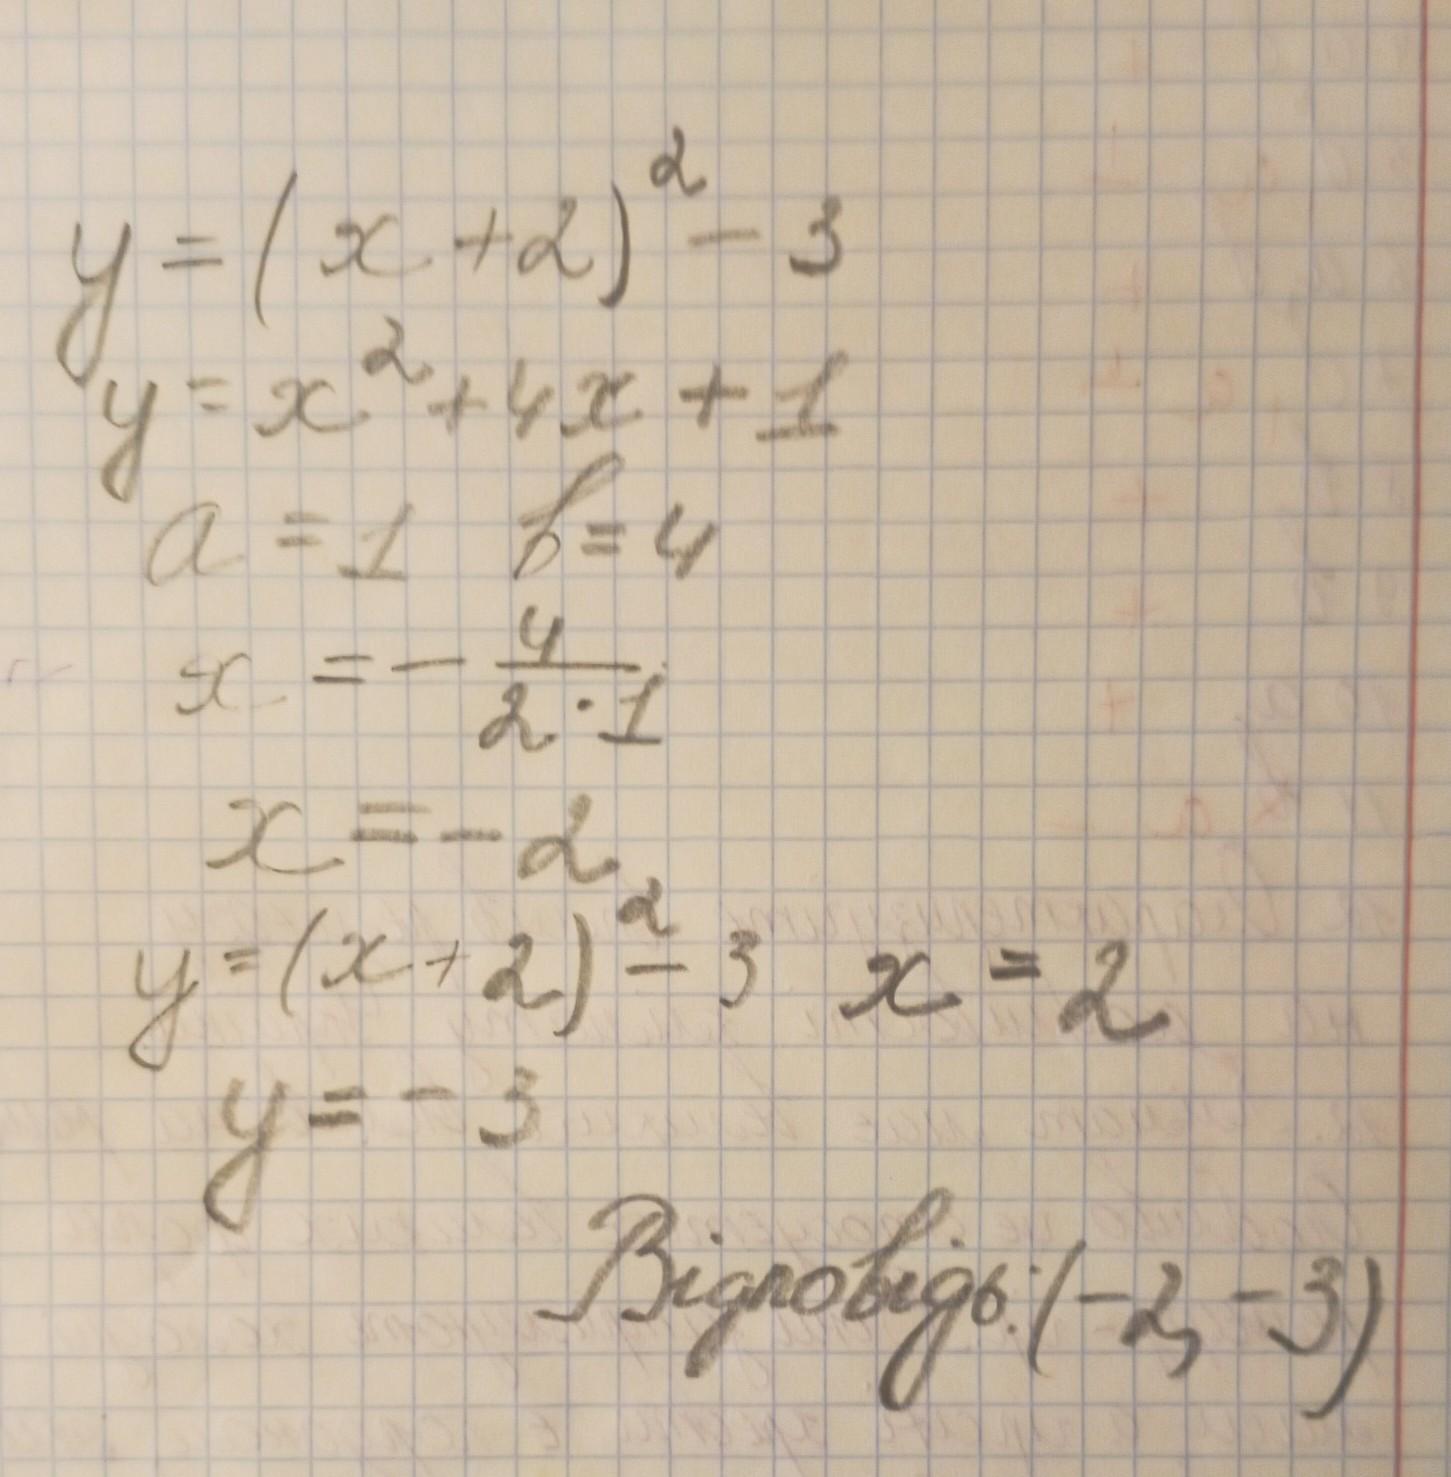 y = (x + 2)² - 3
y = x² + 4x + 1
a = 1 b = 4
x = - 4/(2 · 1)
x = - 2
y = (x + 2)² - 3 x = 2
y = - 3
Відповідь: (-2, -3)